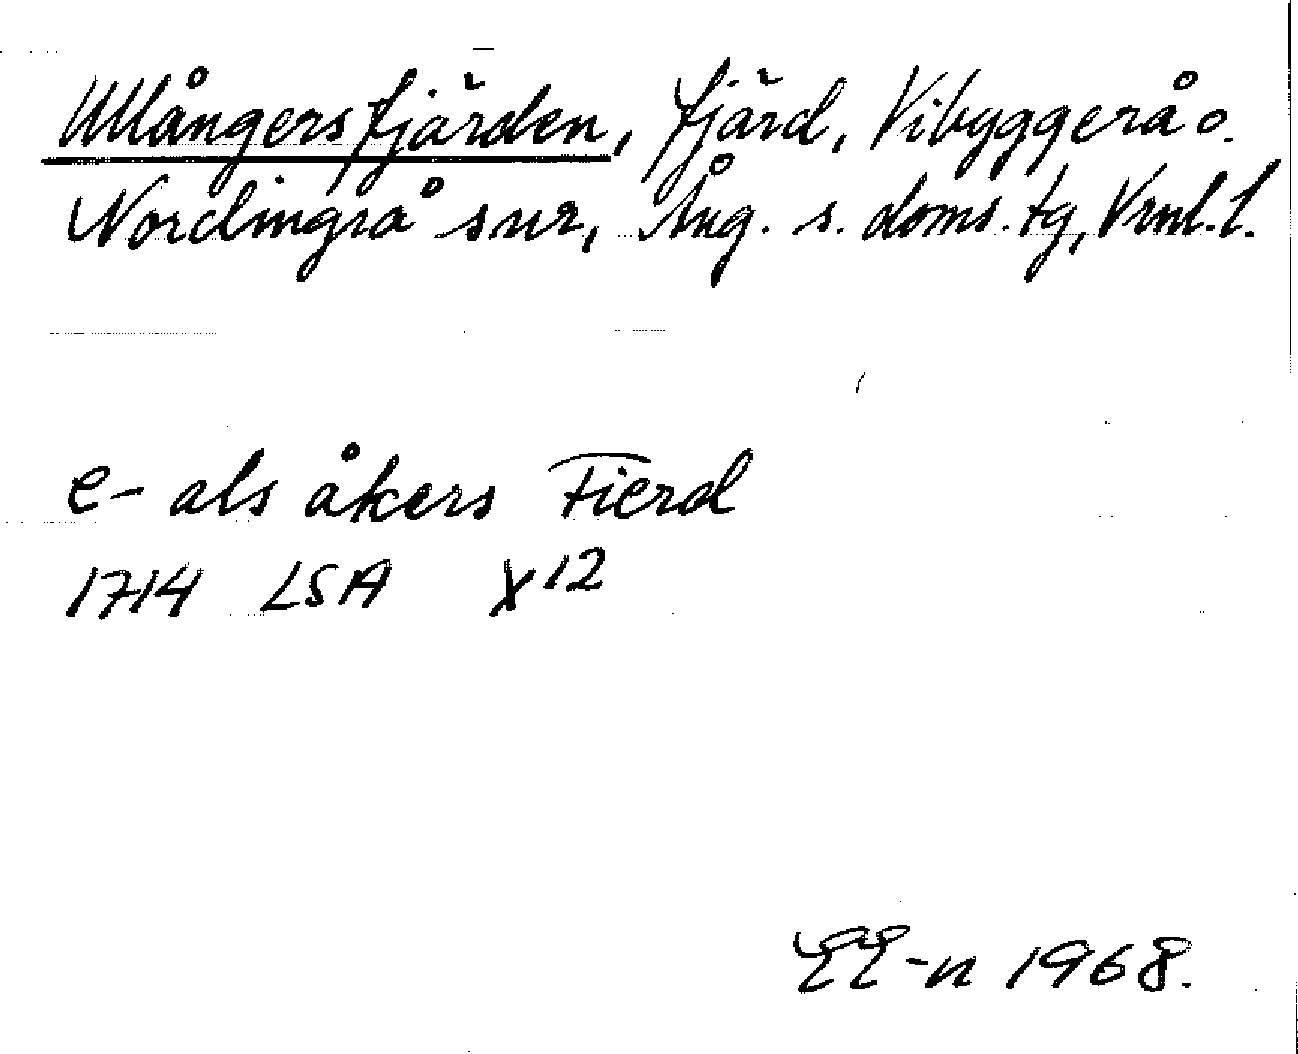 Ullångersfjärden, fjärd, Vibyggerå o.
Nordingrå snr, Ång. s. doms. tg, Vrnl. l.
e- als åkers Fierd
1714 LSA X12
EE-n 1968.